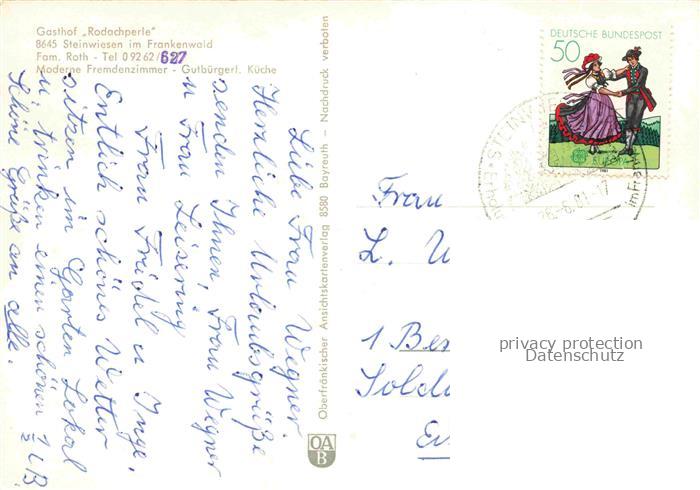 Gasthof „Rodachperle"
8645 Steinwiesen im Frankenwald
Fam. Roth - Tel 0 92 62/627
Moderne Fremdenzimmer - Gutbürgerl. Küche
Liebe Frau Wegner.
Herzliche Urlaubsgrüße
senden Ihnen, Frau Wegner
u Frau Leisering
Frau Friedel u Inge.
Entlich schönes Wetter
sitzen im Garten Lokal
u. trinken einen schönen
Schöne Grüße an alle.
Oberfränkischer Ansichtskartenverlag 8580 Bayreuth - Nachdruck verboten
OA
B
DEUTSCHE BUNDESPOST
50
Frau
L. W
1 Be
privacy protection
Datenschutz